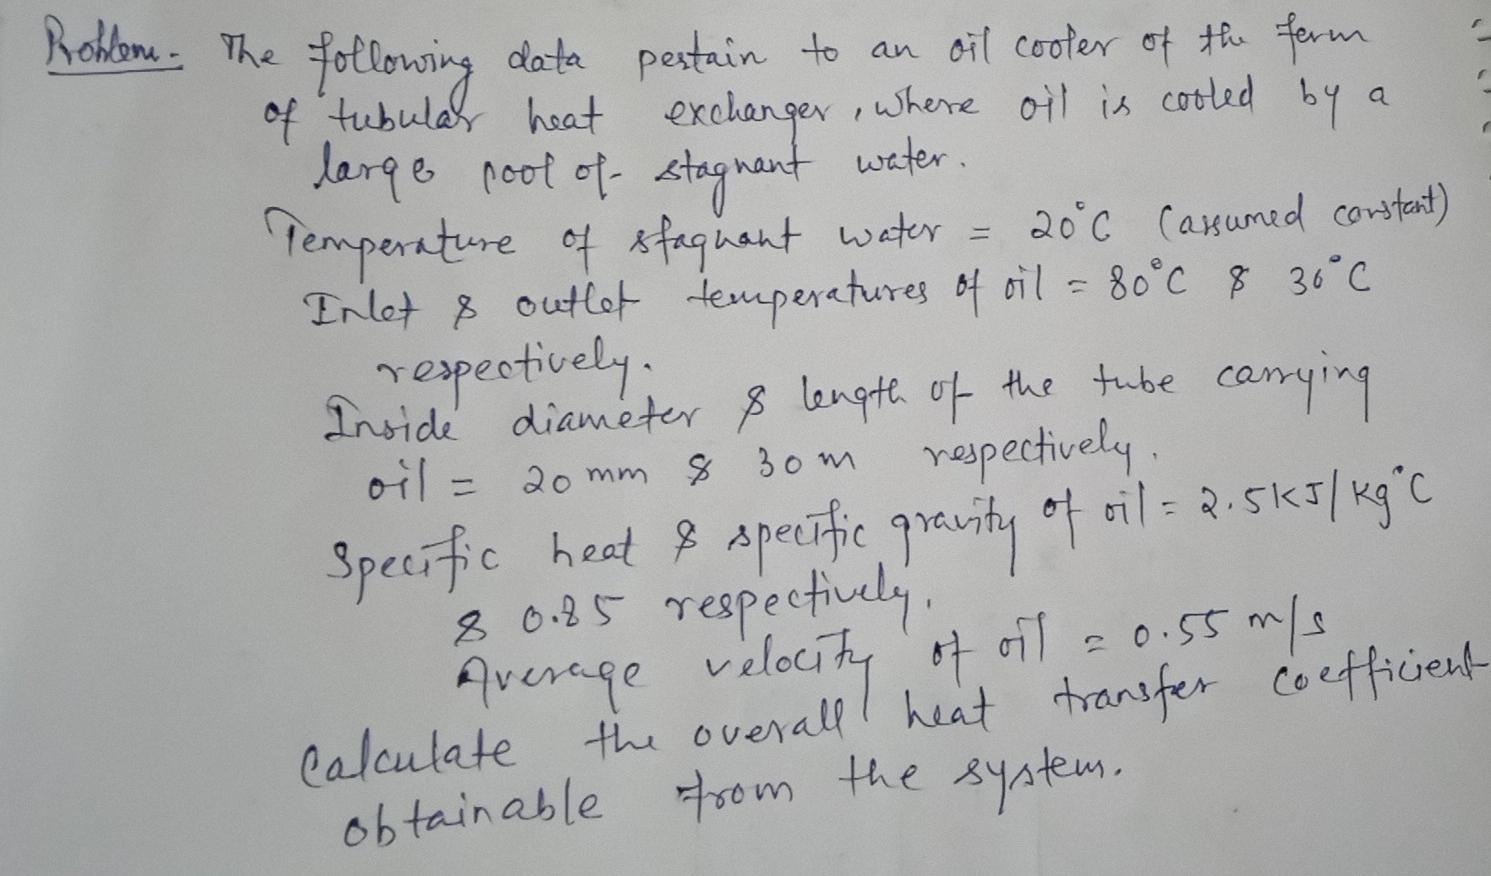 Problem - The following data pertain to an oil cooler of the form
of tubular heat exchanger, where oil is cooled by a
large pool of stagnant water.
Temperature of stagnant water = 20°C (assumed constant)
Inlet & outlet temperatures of oil = 80°C & 30°C
respectively.
Inside diameter & length of the tube carrying
oil = 20 mm & 30 m respectively.
Specific heat & specific gravity of oil = 2.5 KJ/kg°C
& 0.85 respectively.
Average velocity of oil = 0.55 m/s
Calculate the overall heat transfer coefficient
obtainable from the system.